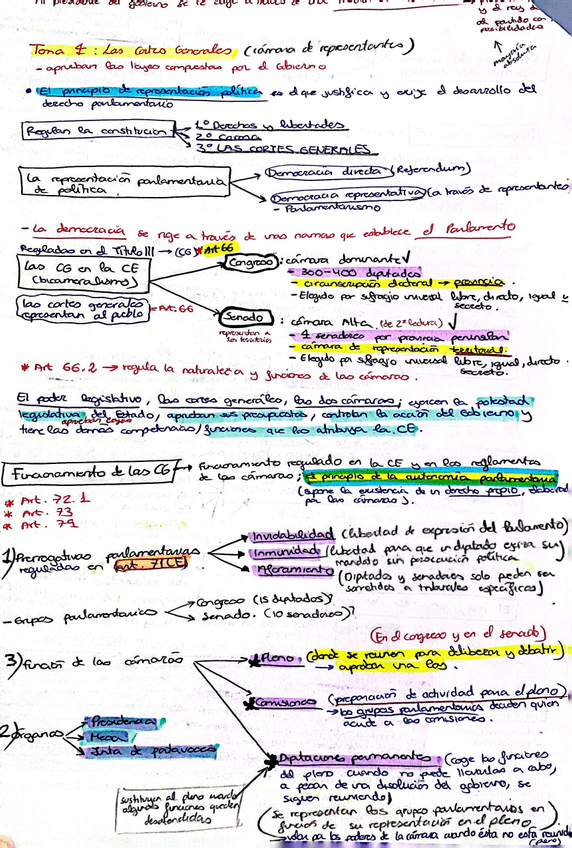 y el rey es
el partido con
posibilidades
mayoría
absoluta
Tema 1: Las Cortes Generales (cámara de representantes)
- aprueban las leyes compuestas por el Gobierno
• El principio de representación política es el que justifica y exige el desarrollo del
derecho parlamentario
Regulan la constitución
1º Derechos y libertades
2º Corona
3º LAS CORTES GENERALES
La representación parlamentaria
de política.
Democracia directa (Referendum)
Democracia representativa (a través de representantes)
- Parlamentarismo
- La democracia se rige a través de unas normas que establece el Parlamento
Reguladas en el Título III → (CG) * Art 66
Las CG en la CE
(bicameralismo)
Las cortes generales
representan al pueblo - Art. 66
Congreso : cámara dominante ✓
- 300-400 diputados
- circunscripción electoral → provincia.
- Elegido por sufragio universal libre, directo, igual y
secreto.
Senado : cámara Alta (de 2ª lectura) ✓
representan a
los territorios
- 4 senadores por provincia peninsular
- cámara de representación territorial.
- Elegido por sufragio universal libre, igual, directo.
secreto.
* Art 66.2 → regula la naturaleza y funciones de las cámaras.
El poder legislativo, las cortes generales, las dos cámaras; ejercen la potestad
legislativa del Estado, aprueban sus presupuestos, controlan la acción del Gobierno y
aprueban leyes
tiene las demás competencias/funciones que les atribuya la CE.
Funcionamiento de las CG → funcionamiento regulado en la CE y en los reglamentos
de las cámaras; el principio de la autonomía parlamentaria
(supone la existencia de un derecho propio, elaborado
por las cámaras).
* Art. 72.1
* Art. 73
* Art. 79
1) Prerrogativas parlamentarias
reguladas en art. 71 CE
Inviolabilidad (libertad de expresión del Parlamento)
Inmunidad (libertad para que un diputado ejerza su
mandato sin persecución política
Aforamiento
(Diputados y senadores solo pueden ser
sometidos a tribunales específicos)
- Grupos parlamentarios
Congreso (15 diputados)?
Senado. (10 senadores)?
(En el congreso y en el senado)
3) función de las cámaras
* Pleno (donde se reunen para deliberar y debatir)
→ aprobar una ley.
* Comisiones (preparación de actividad para el pleno)
→ los grupos parlamentarios deciden quien
acude a las comisiones.
2) órganos
Presidencia
Mesa
Junta de portavoces
* Diputaciones permanentes (coge las funciones
del pleno cuando no puede llevarlas a cabo,
a pesar de una disolución del gobierno, se
siguen reuniendo)
sustituyen al pleno cuando
algunas funciones queden
desatendidas
(se representan los grupos parlamentarios en
función de su representación en el pleno)
→ velan por los poderes de la cámara cuando ésta no está reunida
(pleno)